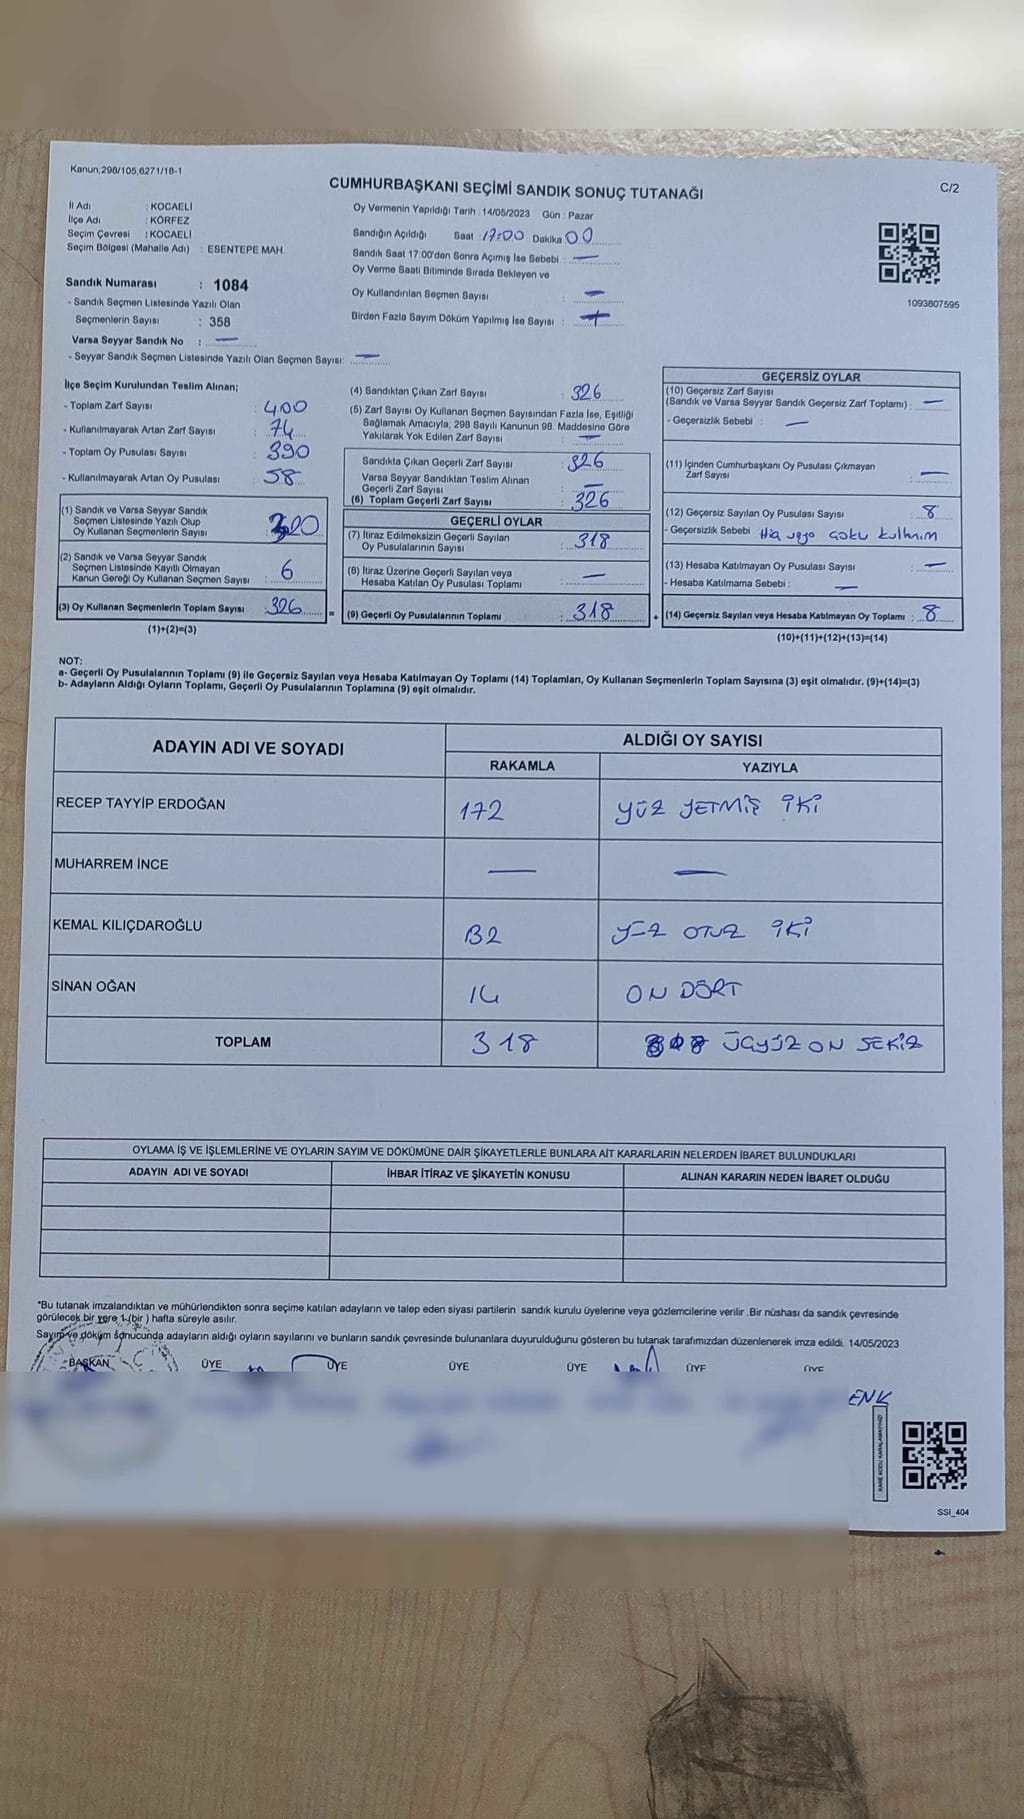 Kanun;298/105,6271/18-1
CUMHURBAŞKANI SEÇİMİ SANDIK SONUÇ TUTANAĞI
C/2
İl Adı : KOCAELİ
İlçe Adı : KÖRFEZ
Seçim Çevresi : KOCAELİ
Seçim Bölgesi (Mahalle Adı) : ESENTEPE MAH.
Oy Vermenin Yapıldığı Tarih : 14/05/2023 Gün : Pazar
Sandığın Açıldığı Saat 17:00 Dakika 00
Sandık Saat 17.00'den Sonra Açımış İse Sebebi : —
Oy Verme Saati Bitiminde Sırada Bekleyen ve
Oy Kullandırılan Seçmen Sayısı : —
Birden Fazla Sayım Döküm Yapılmış İse Sayısı :
1093807595
Sandık Numarası : 1084
- Sandık Seçmen Listesinde Yazılı Olan
Seçmenlerin Sayısı : 358
Varsa Seyyar Sandık No : —
- Seyyar Sandık Seçmen Listesinde Yazılı Olan Seçmen Sayısı: —
İlçe Seçim Kurulundan Teslim Alınan;
- Toplam Zarf Sayısı : 400
- Kullanılmayarak Artan Zarf Sayısı : 74
- Toplam Oy Pusulası Sayısı : 390
- Kullanılmayarak Artan Oy Pusulası : 58
(1) Sandık ve Varsa Seyyar Sandık
Seçmen Listesinde Yazılı Olup
Oy Kullanan Seçmenlerin Sayısı : 320
(2) Sandık ve Varsa Seyyar Sandık
Seçmen Listesinde Kayıtlı Olmayan
Kanun Gereği Oy Kullanan Seçmen Sayısı : 6
(3) Oy Kullanan Seçmenlerin Toplam Sayısı : 326
(1)+(2)=(3)
=
(4) Sandıktan Çıkan Zarf Sayısı : 326
(5) Zarf Sayısı Oy Kullanan Seçmen Sayısından Fazla İse, Eşitliği
Sağlamak Amacıyla, 298 Sayılı Kanunun 98. Maddesine Göre
Yakılarak Yok Edilen Zarf Sayısı : —
Sandıkta Çıkan Geçerli Zarf Sayısı : 326
Varsa Seyyar Sandıktan Teslim Alınan
Geçerli Zarf Sayısı : —
(6) Toplam Geçerli Zarf Sayısı : 326
GEÇERLİ OYLAR
(7) İtiraz Edilmeksizin Geçerli Sayılan
Oy Pusulalarının Sayısı : 318
(8) İtiraz Üzerine Geçerli Sayılan veya
Hesaba Katılan Oy Pusulası Toplamı : —
(9) Geçerli Oy Pusulalarının Toplamı : 318
+
GEÇERSİZ OYLAR
(10) Geçersiz Zarf Sayısı
(Sandık ve Varsa Seyyar Sandık Geçersiz Zarf Toplamı) : —
- Geçersizlik Sebebi : —
(11) İçinden Cumhurbaşkanı Oy Pusulası Çıkmayan
Zarf Sayısı : —
(12) Geçersiz Sayılan Oy Pusulası Sayısı : 8
- Geçersizlik Sebebi Hiç veya çoklu kullanım
(13) Hesaba Katılmayan Oy Pusulası Sayısı : —
- Hesaba Katılmama Sebebi : —
(14) Geçersiz Sayılan veya Hesaba Katılmayan Oy Toplamı : 8
(10)+(11)+(12)+(13)=(14)
NOT:
a- Geçerli Oy Pusulalarının Toplamı (9) ile Geçersiz Sayılan veya Hesaba Katılmayan Oy Toplamı (14) Toplamları, Oy Kullanan Seçmenlerin Toplam Sayısına (3) eşit olmalıdır. (9)+(14)=(3)
b- Adayların Aldığı Oyların Toplamı, Geçerli Oy Pusulalarının Toplamına (9) eşit olmalıdır.
ADAYIN ADI VE SOYADI
ALDIĞI OY SAYISI
RAKAMLA YAZIYLA
RECEP TAYYİP ERDOĞAN 172 YÜZ YETMİŞ İKİ
MUHARREM İNCE — —
KEMAL KILIÇDAROĞLU 132 YÜZ OTUZ İKİ
SİNAN OĞAN 14 ON DÖRT
TOPLAM 318 ÜÇYÜZ ON SEKİZ
OYLAMA İŞ VE İŞLEMLERİNE VE OYLARIN SAYIM VE DÖKÜMÜNE DAİR ŞİKAYETLERLE BUNLARA AİT KARARLARIN NELERDEN İBARET BULUNDUKLARI
ADAYIN ADI VE SOYADI İHBAR İTİRAZ VE ŞİKAYETİN KONUSU ALINAN KARARIN NEDEN İBARET OLDUĞU
*Bu tutanak imzalandıktan ve mühürlendikten sonra seçime katılan adayların ve talep eden siyasi partilerin sandık kurulu üyelerine veya gözlemcilerine verilir .Bir nüshası da sandık çevresinde
görülecek bir yere 1 (bir ) hafta süreyle asılır.
Sayım ve döküm sonucunda adayların aldığı oyların sayılarını ve bunların sandık çevresinde bulunanlara duyurulduğunu gösteren bu tutanak tarafımızdan düzenlenerek imza edildi. 14/05/2023
BAŞKAN ÜYE ÜYE ÜYE ÜYE ÜYE ÜYE
ENK
KARE KODU KARALAMAYINIZ!
SSI_404